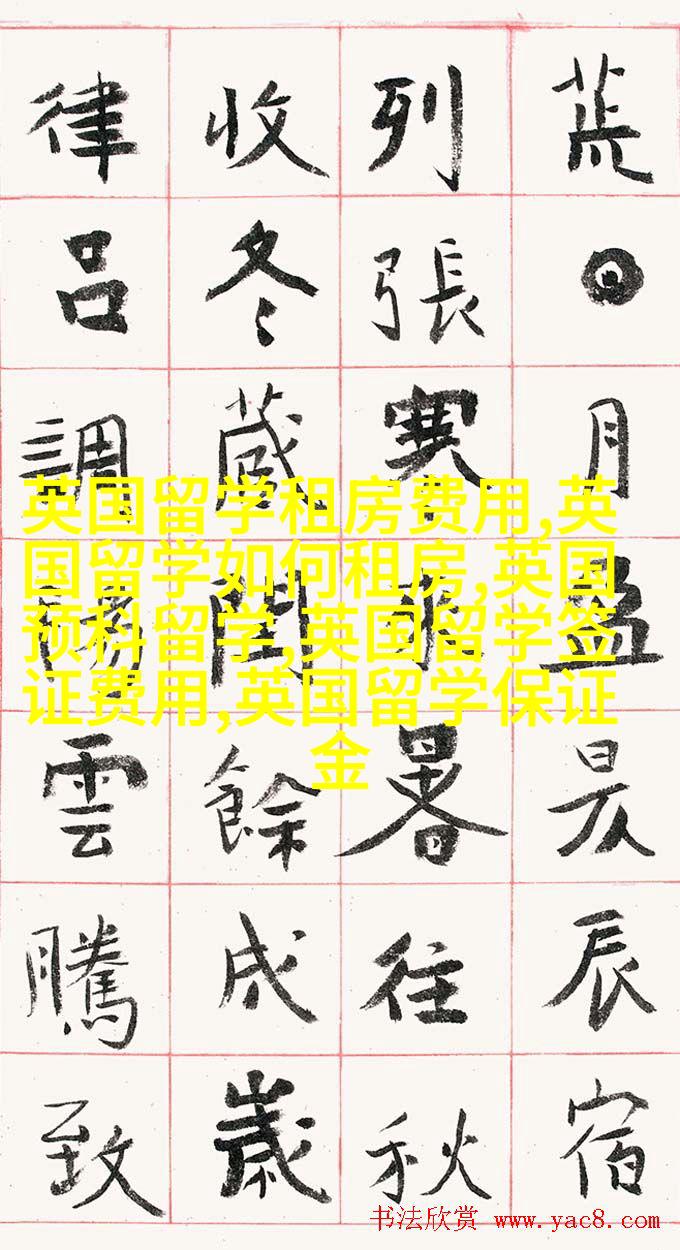 荒日月盈昃辰宿
列張寒来暑往秋
收冬藏閏餘成歲
律呂調陽雲騰致
英国留学租房费用,英
国留学如何租房,英国
预科留学,英国留学签
证费用,英国留学保证
金
书法欣赏 www.yac8.com